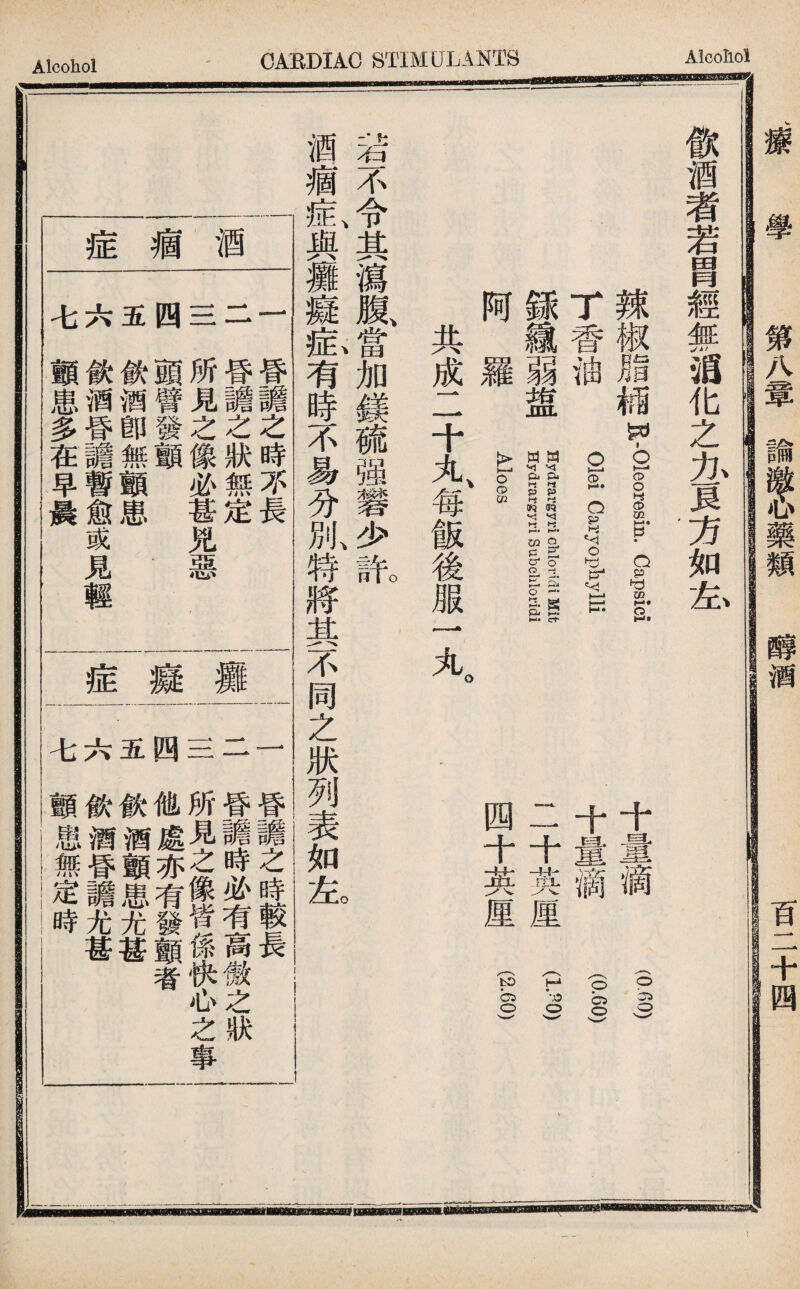 Alcohol
CARDIAC STIMULANTS
Alcohol
療學 第八章 論激心藥類 醇酒 百二十四
飲酒者若胃經無消化之力、良方如左、
辣椒脂㮋 ℞-Oleoresin. Capsici. 十量滴 (0.60)
丁香油 Olei Caryophylli. 十量滴 (0.60)
銾弱盐 Hydrargyri chloridi Mit
Hydrargyri Subchloridi 二十英厘 (1.30)
阿羅 Aloes 四十英厘 (2.60)
共成二十丸、每飯後服一丸。
若不令其瀉腹、當加鎂硫强礬少許。
酒痼症、與癱癡症、有時不易分別、特將其不同之狀列表如左。
酒痼症
一 昏譫之時不長
二 昏譫之狀無定
三 所見之像必甚兇惡
四 頭臂發顫
五 飲酒卽無顫患
六 飲酒昏譫暫愈或見輕
七 顫患多在早晨
癱癡症
一 昏譫之時較長
二 昏譫時必有高傲之狀
三 所見之像皆係快心之事
四 他處亦有發顫者
五 飲酒顫患尤甚
六 飲酒昏譫尤甚
七 顫患無定時